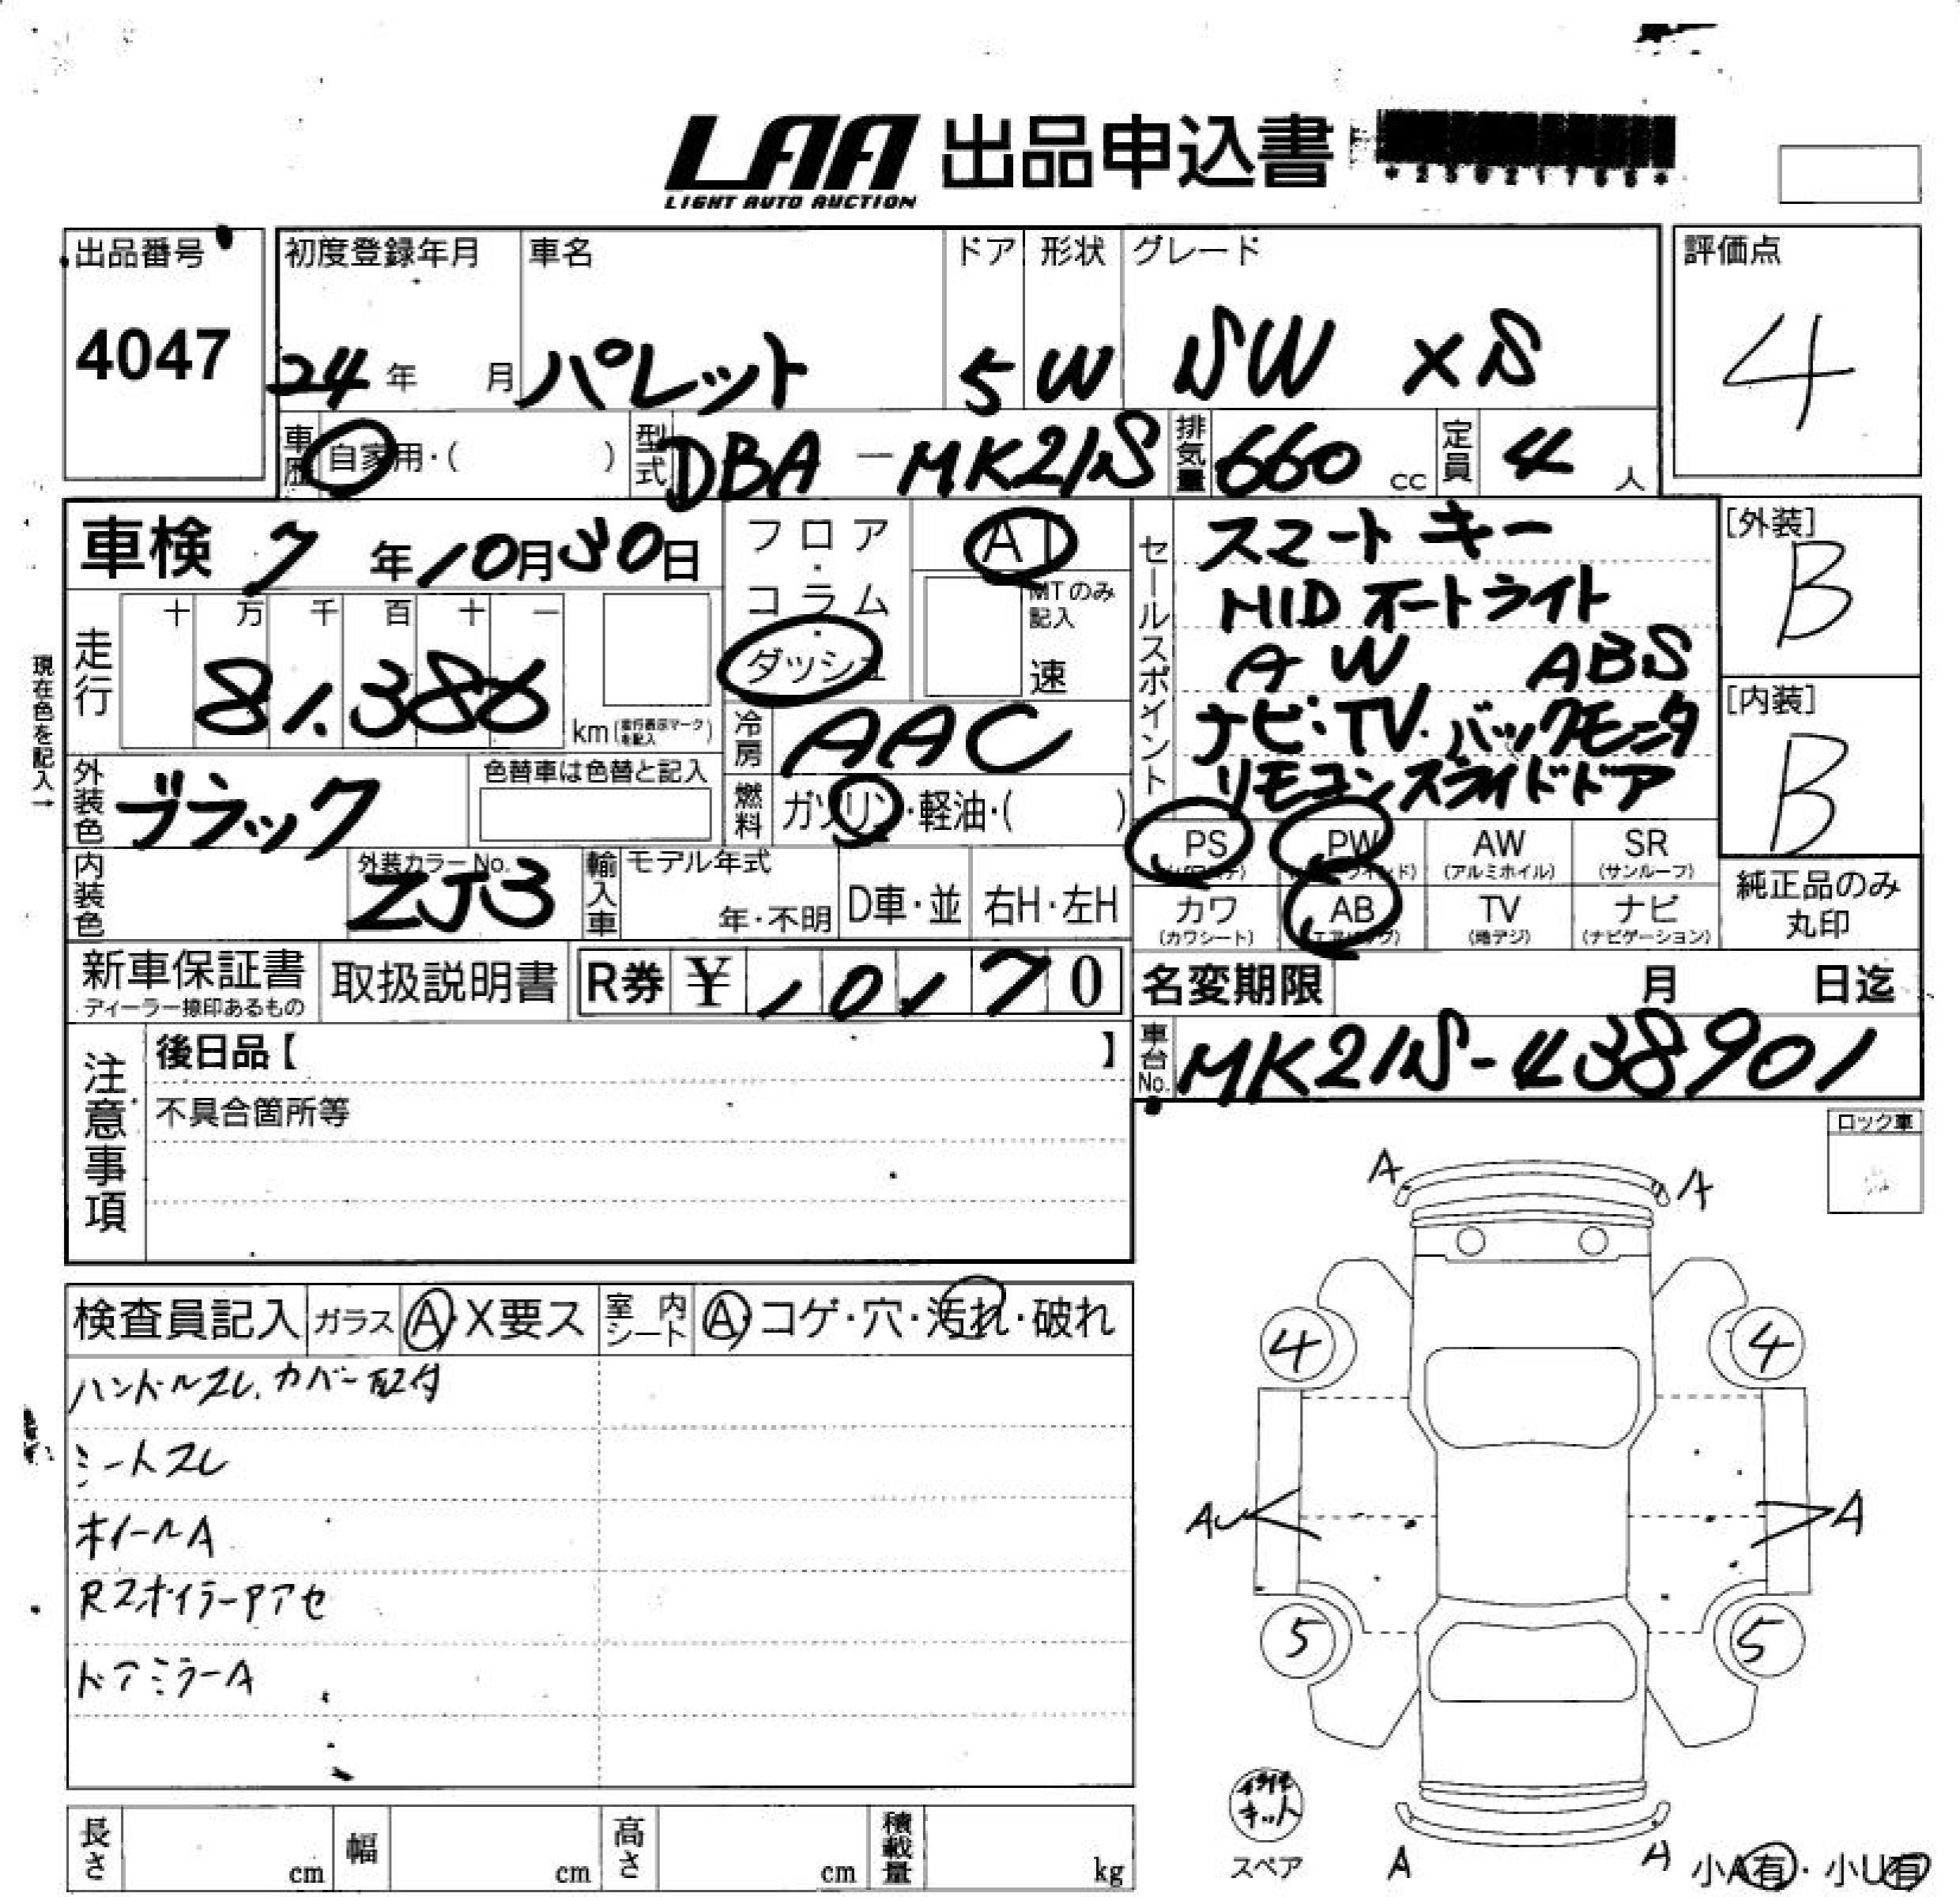 LAA 出品申込書
LIGHT AUTO AUCTION
*23021766*
出品番号 初度登録年月 車名 ドア 形状 グレード 評価点
4047 24年 月 パレット 5 W SW XS 4
車歴 自家用・( ) 型式 DBA-MK21S 排気量 660 cc 定員 4 人
車検 7年10月30日 フロア・コラム・ダッシュ AT
MTのみ記入 速
セールスポイント
スマートキー
HID オートライト
AW ABS
ナビ・TV・バックモニタ
リモコンスライドドア
[外装] B
[内装] B
現在色を記入→
走行 十 万 千 百 十 一
81.386 km (走行表示マークを記入)
冷房 AAC
外装色 ブラック 色替車は色替と記入
燃料 ガソリン・軽油・( )
PS PW AW SR
(パワステ) (パワーウインド) (アルミホイル) (サンルーフ)
カワ AB TV ナビ
(カワシート) (エアバッグ) (地デジ) (ナビゲーション)
純正品のみ丸印
内装色 外装カラーNo. ZJ3 輸入車 モデル年式 年・不明 D車・並 右H・左H
新車保証書 取扱説明書 R券 ¥ 10170
ディーラー捺印あるもの
名変期限 月 日迄
車台No. MK21S-438901
注意事項
後日品【 】
不具合箇所等
ロック車
検査員記入 ガラス A・X要ス 室内シート A・コゲ・穴・汚れ・破れ
ハンドルスレ、カバー取付
シートスレ
ホイールA
RスポイラーPアセ
ドアミラーA
A A
4 4
A A
5 5
キット
スペア
A A
小A有・小U有
長さ cm 幅 cm 高さ cm 積載量 kg